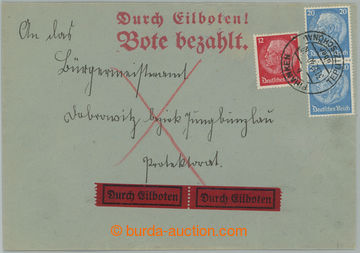 Durch Eilboten!
Bote bezahlt.
An das
Bürgermeisteramt
Dobrowitz bezirk Jungbunzlau
Protektorat.
12
Deutsches Reich
20
Deutsches Reich
Durch Eilboten
Durch Eilboten
© burda-auction.com